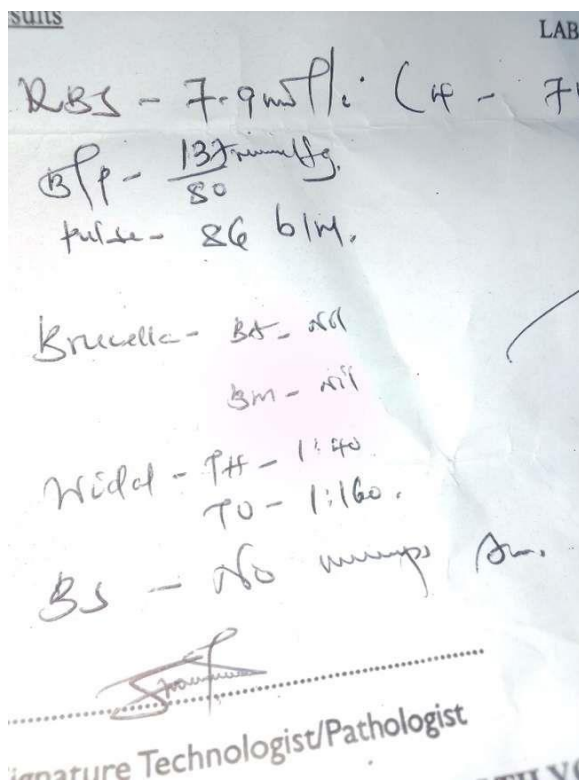 sults
LAB
RBS - 7.9 (4 - 7
B/P - 137 mmHg.
80
pulse - 86 b/m.
Brucella - BA - Nil
BM - Nil
Widal - TH - 1:40
TO - 1:160.
BS - No mmps
ignature Technologist/Pathologist